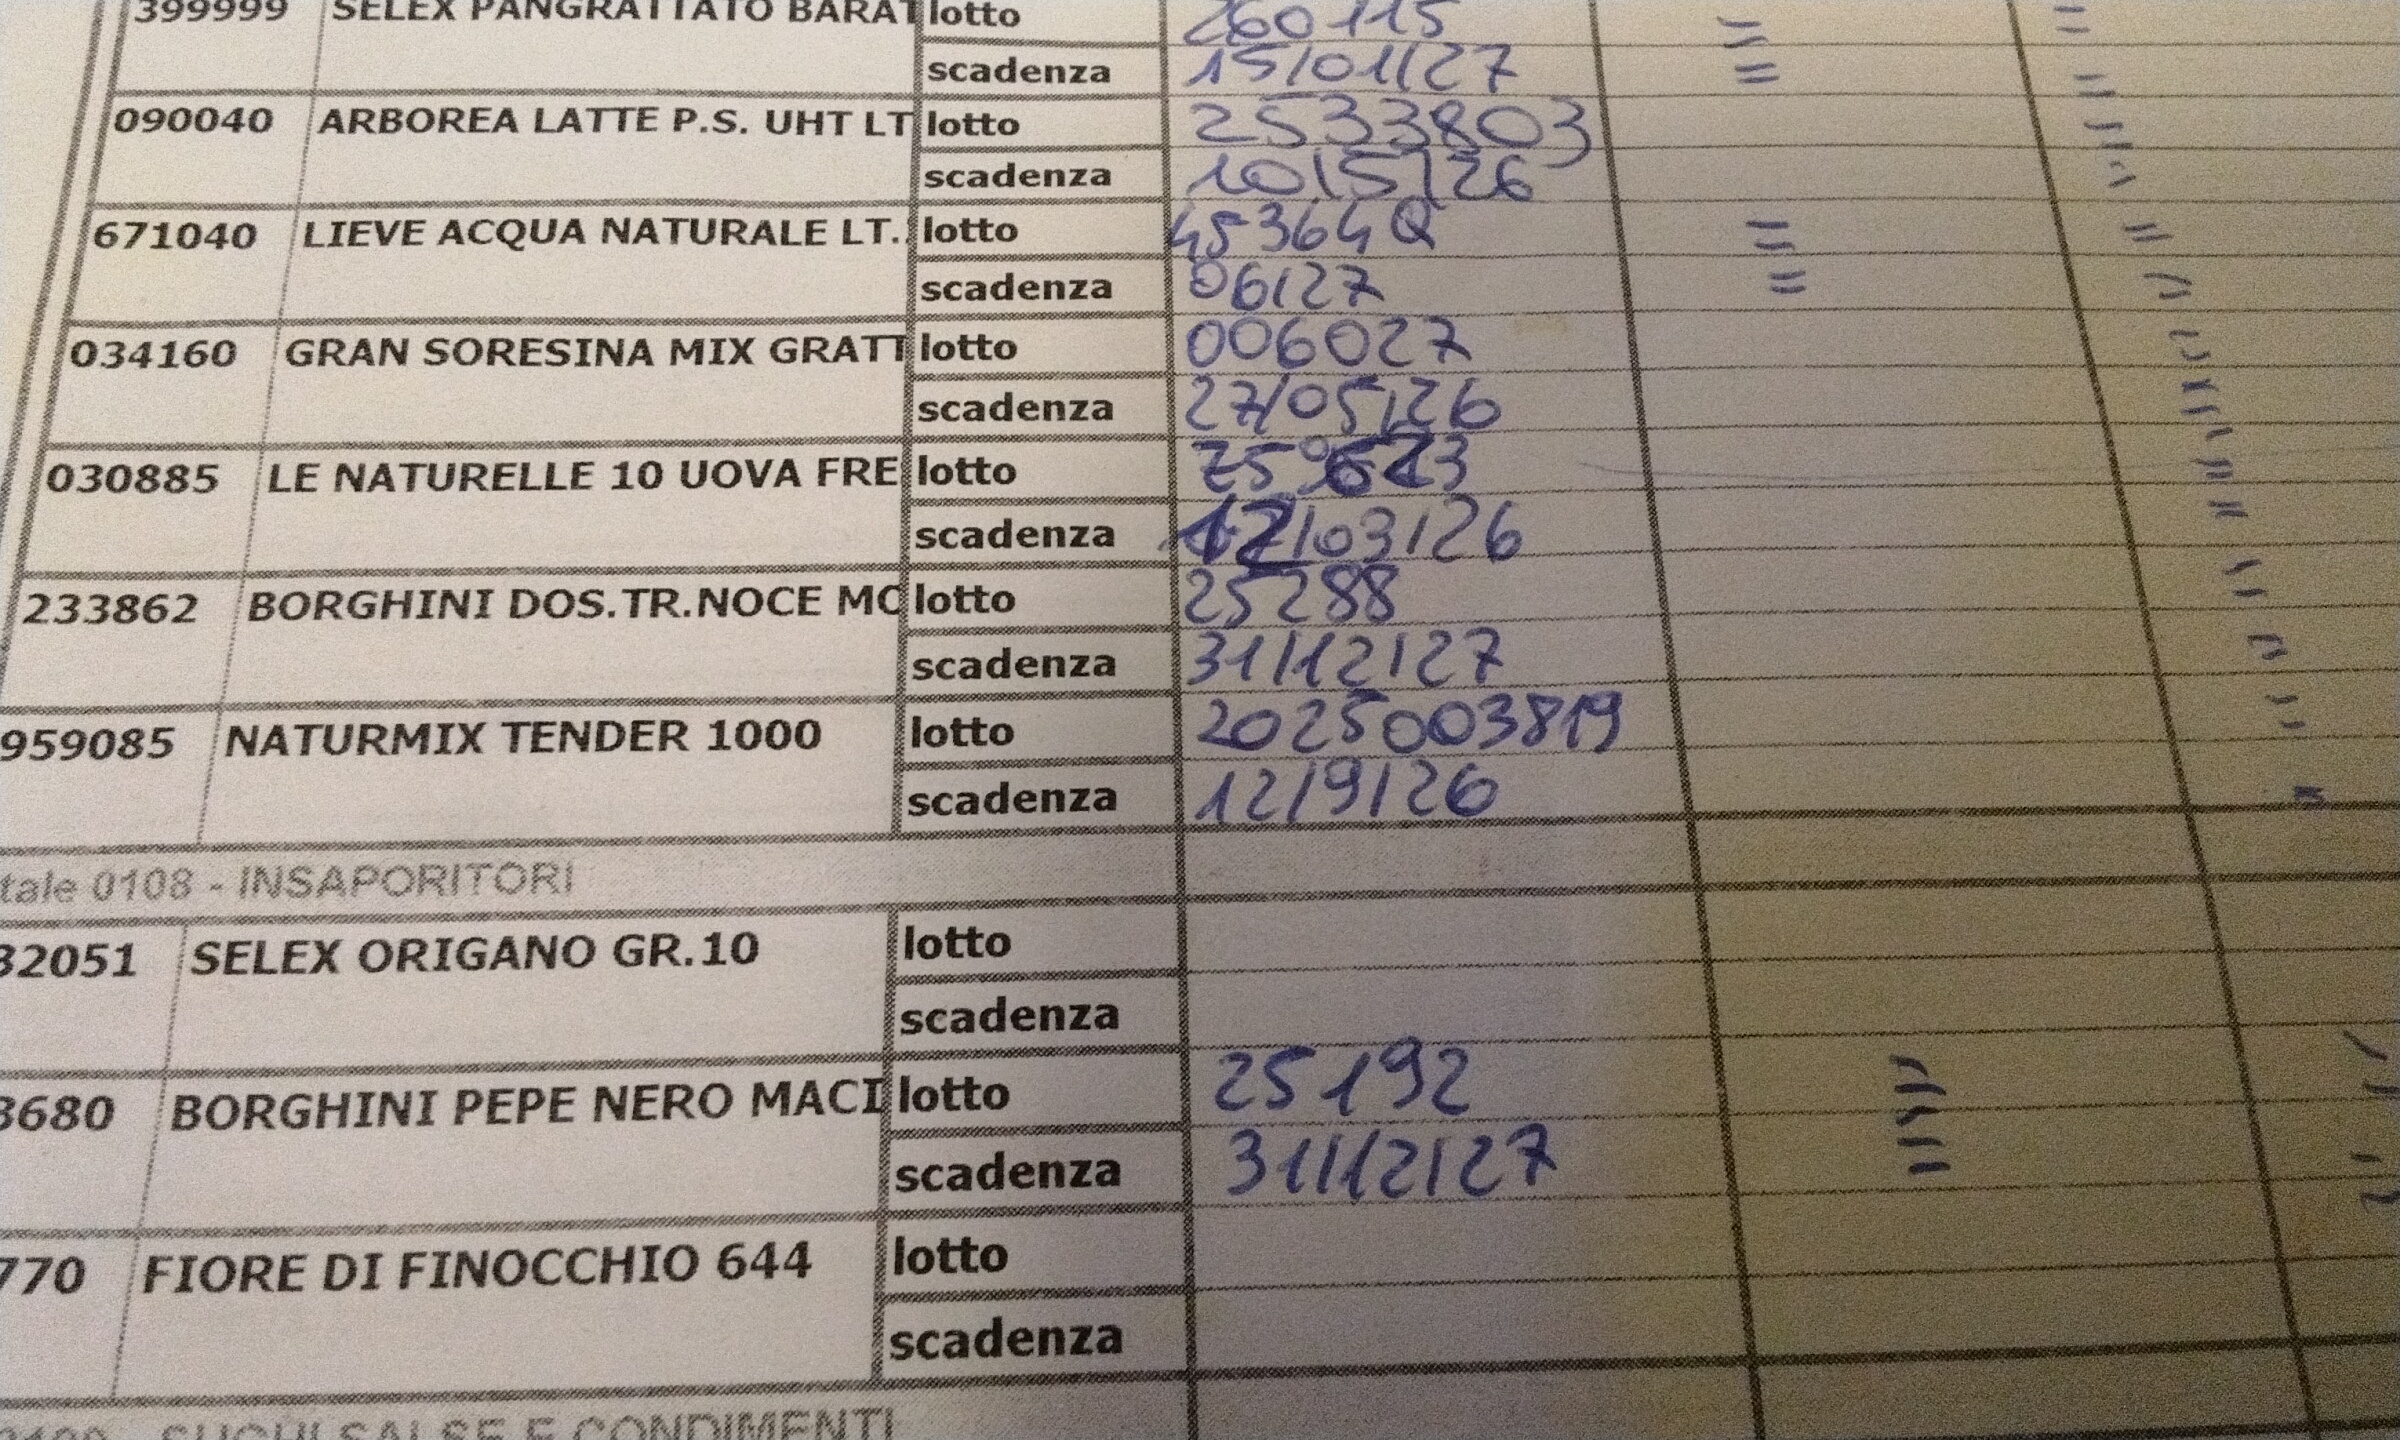 399999 SELEX PANGRATTATO BARAT lotto 260115 = =
scadenza 15/01/27 = =
090040 ARBOREA LATTE P.S. UHT LT lotto 2533803
scadenza 10/5/26
671040 LIEVE ACQUA NATURALE LT. lotto 45364Q = =
scadenza 06/27 = =
034160 GRAN SORESINA MIX GRATT lotto 006027
scadenza 27/05/26
030885 LE NATURELLE 10 UOVA FRE lotto
scadenza 12/03/26
233862 BORGHINI DOS.TR.NOCE MO lotto 25288
scadenza 31/12/27
959085 NATURMIX TENDER 1000 lotto 2025003819
scadenza 12/9/26
tale 0108 - INSAPORITORI
32051 SELEX ORIGANO GR.10 lotto
scadenza
3680 BORGHINI PEPE NERO MACI lotto 25192 =
scadenza 31/12/27 =
770 FIORE DI FINOCCHIO 644 lotto
scadenza
0109 - SUGHI SALSE E CONDIMENTI